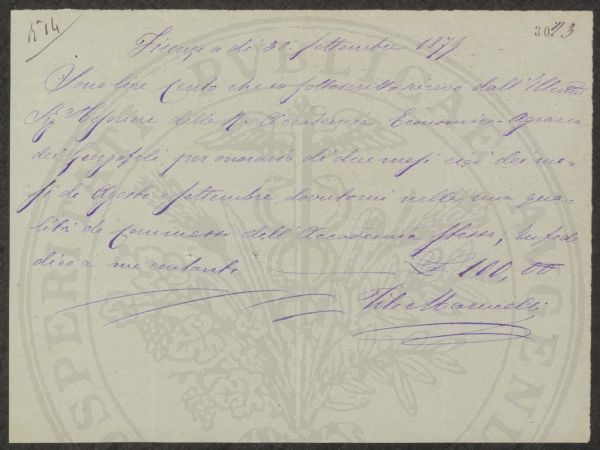 N° 14
30 23
Firenze a dì 30. Settembre 1879
Sono lire Cento che io sottoscritto ricevo dall' Illmo
Sigr. Tesoriere della R. Accademia Economico-Agraria
dei Georgofili, per onorario di due mesi cioè dei me-
si di Agosto e Settembre dovutomi nella mia qua-
lità di Commesso dell' Accademia stessa; In fede
dico a me contanti £ 100, 00
Marinelli
PUBLICAE
PROSPERITATI AUGENDAE